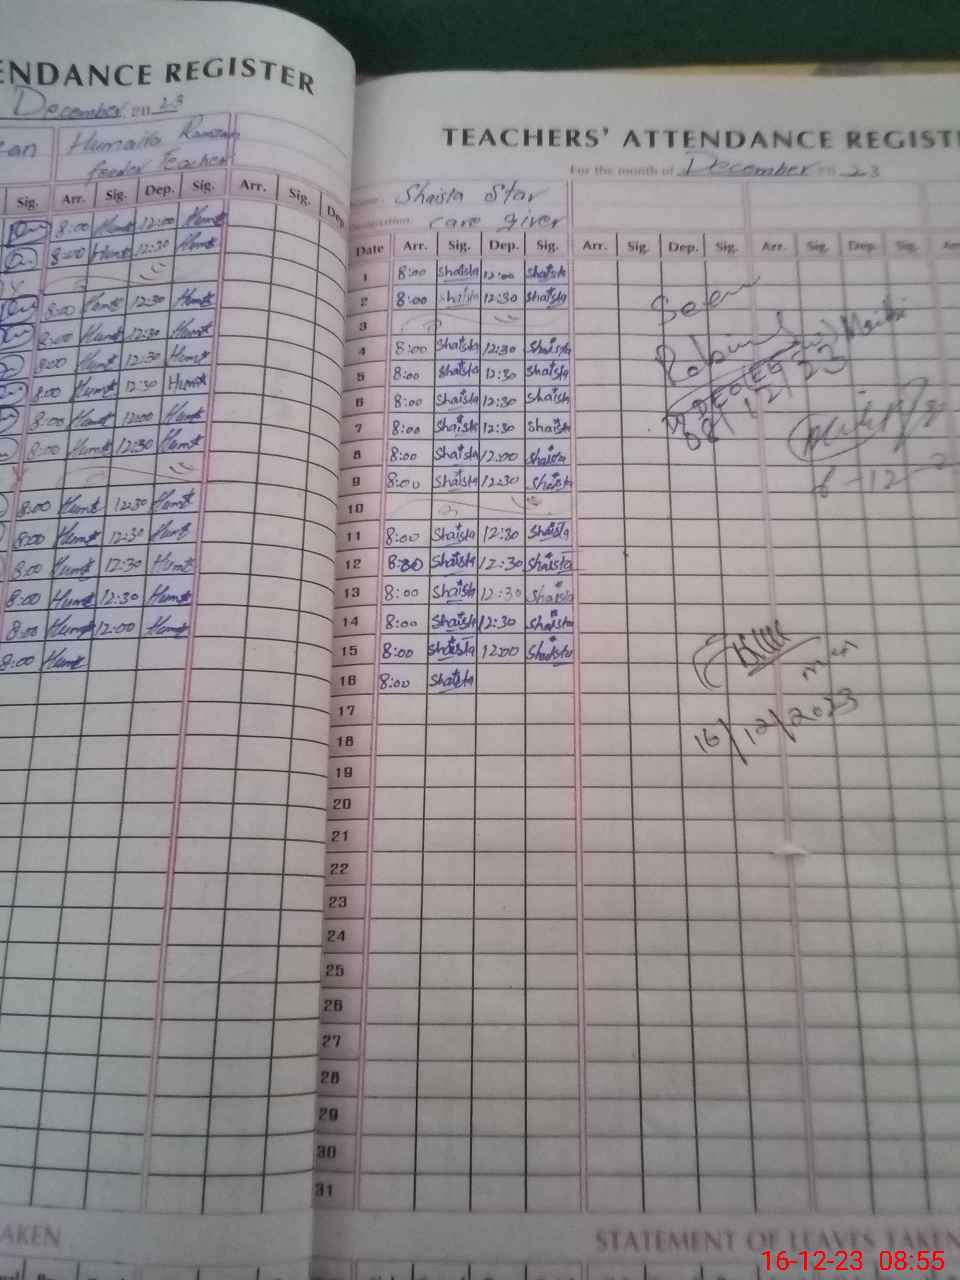 ENDANCE REGISTER
December 20 23
ean Humaila Ramzan
feeder Teacher
Sig. Arr. Sig. Dep. Sig. Arr. Sig. Dep
8:00 Humt 12:00 Humt
8:00 Humt 12:30 Humt
8:00 Humt 12:30 Humt
8:00 Humt 12:30 Humt
8:00 Humt 12:30 Humt
8:00 Humt 12:30 Humt
8:00 Humt 12:00 Humt
8:00 Humt 12:30 Humt
8:00 Humt 12:30 Humt
8:00 Humt 12:30 Humt
8:00 Humt 12:30 Humt
8:00 Humt 12:30 Humt
8:00 Humt 12:00 Humt
8:00 Humt
AKEN
TEACHERS' ATTENDANCE REGISTE
For the month of December 20 23
Shaista Star
care giver
Date Arr. Sig. Dep. Sig. Arr. Sig. Dep. Sig. Arr. Sig. Dep. Sig.
1 8:00 Shaista 12:00 Shaista
2 8:00 Shaista 12:30 Shaista
3
4 8:00 Shaista 12:30 Shaista
5 8:00 Shaista 12:30 Shaista
6 8:00 Shaista 12:30 Shaista
7 8:00 Shaista 12:30 Shaista
8 8:00 Shaista 12:00 Shaista
9 8:00 Shaista 12:30 Shaista
10
11 8:00 Shaista 12:30 Shaista
12 8:30 Shaista 12:30 Shaista
13 8:00 Shaista 12:30 Shaista
14 8:00 Shaista 12:30 Shaista
15 8:00 Shaista 12:00 Shaista
16 8:00 Shaista
17
18
19
20
21
22
23
24
25
26
27
28
29
30
31
Seen
08/12/23
6-12
16/12/2023
STATEMENT OF LEAVES TAKEN
16-12-23 08:55